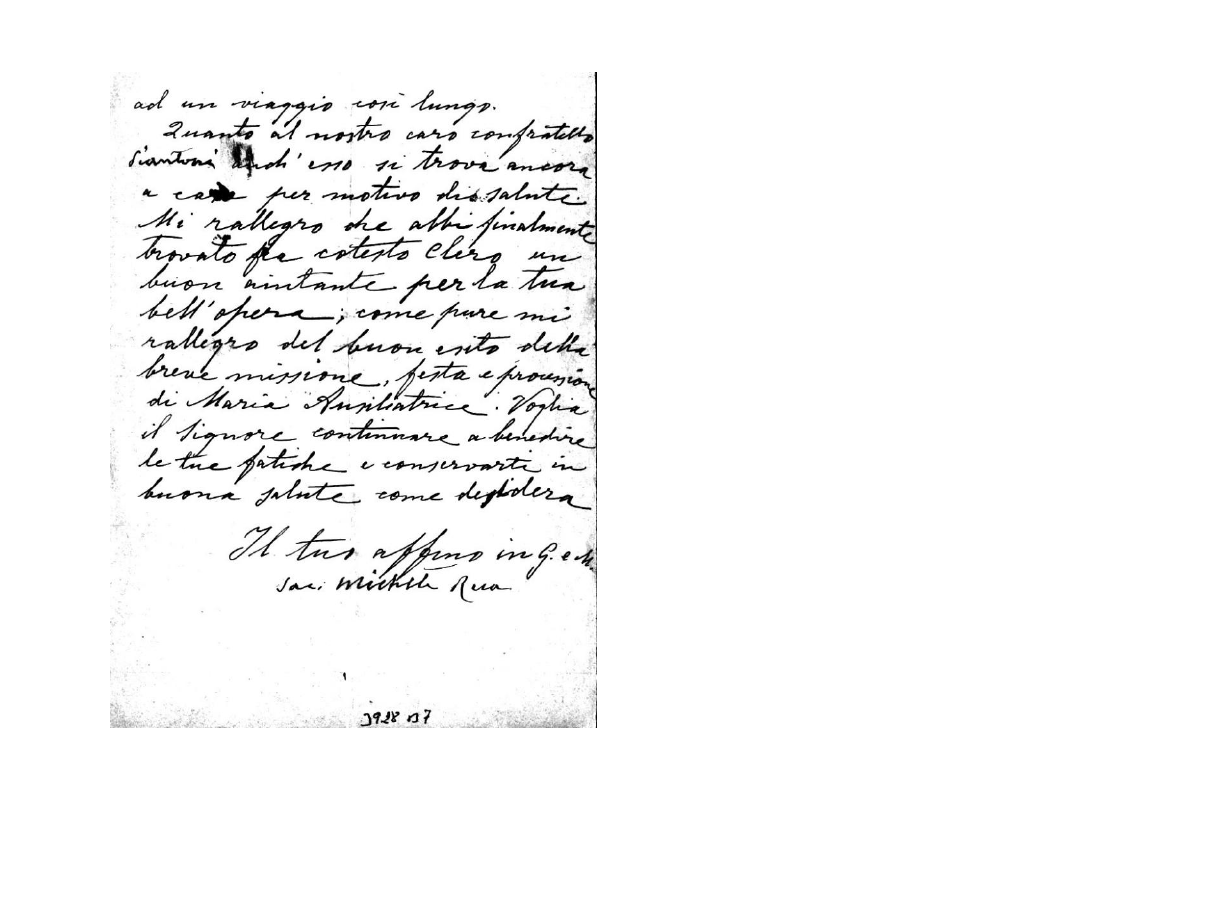 ad un viaggio così lungo.
Quanto al nostro caro confratello
anch' esso si trova ancora
a casa per motivo di salute.
Mi rallegro che abbi finalmente
trovato fra cotesto Clero un
buon aiutante per la tua
bell'opera; come pure mi
rallegro del buon esito della
breve missione, festa e processione
di Maria Ausiliatrice. Voglia
il Signore continuare a benedire
le tue fatiche e conservarti in
buona salute come desidera
Il tuo affmo in G. e M.
Sac. Michele Rua
3928 B7